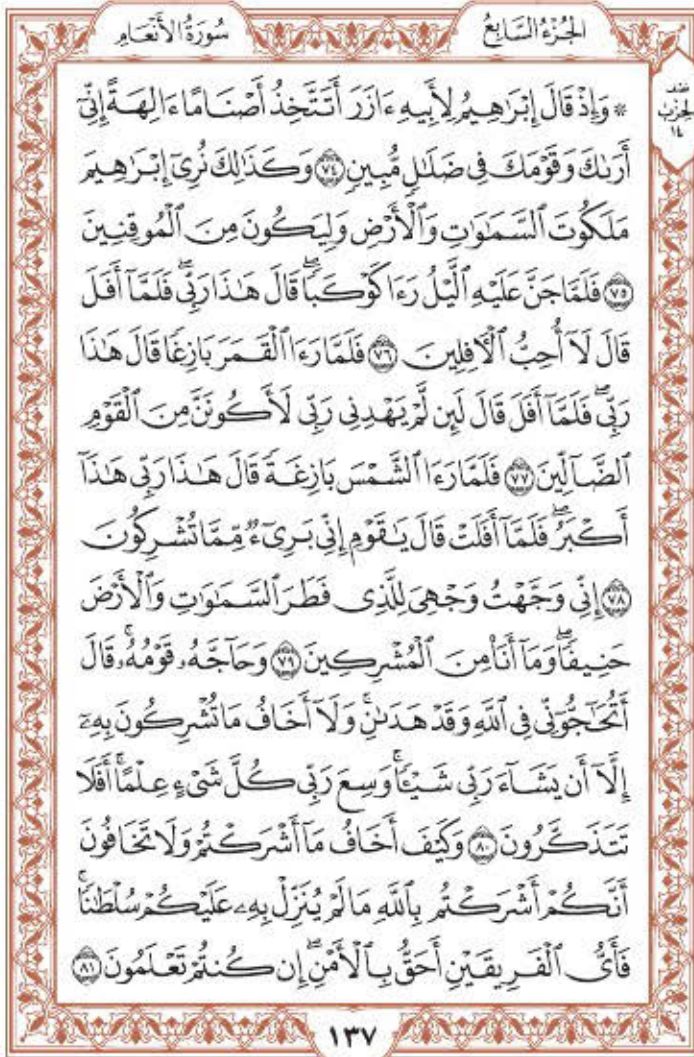 الجُزْءُ السَّابِعُ
سُورَةُ الأَنْعَامِ
نصف
الحزب
١٤
۞ وَإِذْ قَالَ إِبْرَٰهِيمُ لِأَبِيهِ ءَازَرَ أَتَتَّخِذُ أَصْنَامًا ءَالِهَةً إِنِّيٓ
أَرَىٰكَ وَقَوْمَكَ فِي ضَلَٰلٖ مُّبِينٖ ٧٤ وَكَذَٰلِكَ نُرِيٓ إِبْرَٰهِيمَ
مَلَكُوتَ ٱلسَّمَٰوَٰتِ وَٱلْأَرْضِ وَلِيَكُونَ مِنَ ٱلْمُوقِنِينَ
٧٥ فَلَمَّا جَنَّ عَلَيْهِ ٱلَّيْلُ رَءَا كَوْكَبٗاۖ قَالَ هَٰذَا رَبِّيۖ فَلَمَّآ أَفَلَ
قَالَ لَآ أُحِبُّ ٱلْأٓفِلِينَ ٧٦ فَلَمَّا رَءَا ٱلْقَمَرَ بَازِغٗا قَالَ هَٰذَا
رَبِّيۖ فَلَمَّآ أَفَلَ قَالَ لَئِن لَّمْ يَهْدِنِي رَبِّي لَأَكُونَنَّ مِنَ ٱلْقَوْمِ
ٱلضَّآلِّينَ ٧٧ فَلَمَّا رَءَا ٱلشَّمْسَ بَازِغَةٗ قَالَ هَٰذَا رَبِّي هَٰذَآ
أَكْبَرُۖ فَلَمَّآ أَفَلَتْ قَالَ يَٰقَوْمِ إِنِّي بَرِيٓءٞ مِّمَّا تُشْرِكُونَ
٧٨ إِنِّي وَجَّهْتُ وَجْهِيَ لِلَّذِي فَطَرَ ٱلسَّمَٰوَٰتِ وَٱلْأَرْضَ
حَنِيفٗاۖ وَمَآ أَنَا۠ مِنَ ٱلْمُشْرِكِينَ ٧٩ وَحَآجَّهُۥ قَوْمُهُۥۚ قَالَ
أَتُحَٰٓجُّوٓنِّي فِي ٱللَّهِ وَقَدْ هَدَىٰنِۚ وَلَآ أَخَافُ مَا تُشْرِكُونَ بِهِۦٓ
إِلَّآ أَن يَشَآءَ رَبِّي شَيْـٔٗاۚ وَسِعَ رَبِّي كُلَّ شَيْءٍ عِلْمًاۚ أَفَلَا
تَتَذَكَّرُونَ ٨٠ وَكَيْفَ أَخَافُ مَآ أَشْرَكْتُمْ وَلَا تَخَافُونَ
أَنَّكُمْ أَشْرَكْتُم بِٱللَّهِ مَا لَمْ يُنَزِّلْ بِهِۦ عَلَيْكُمْ سُلْطَٰنٗاۚ
فَأَيُّ ٱلْفَرِيقَيْنِ أَحَقُّ بِٱلْأَمْنِۖ إِن كُنتُمْ تَعْلَمُونَ ٨١
١٣٧